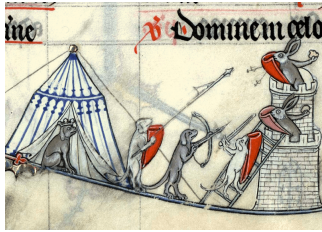 ine
V Domine in celo